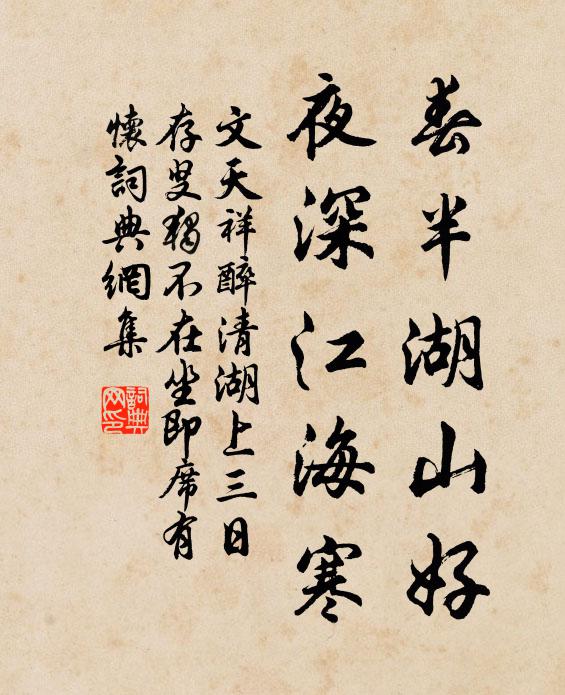 春半湖山好
夜深江海寒
文天祥醉清湖上三日
存叟獨不在坐即席有
懷詞典網集
詞典
网印